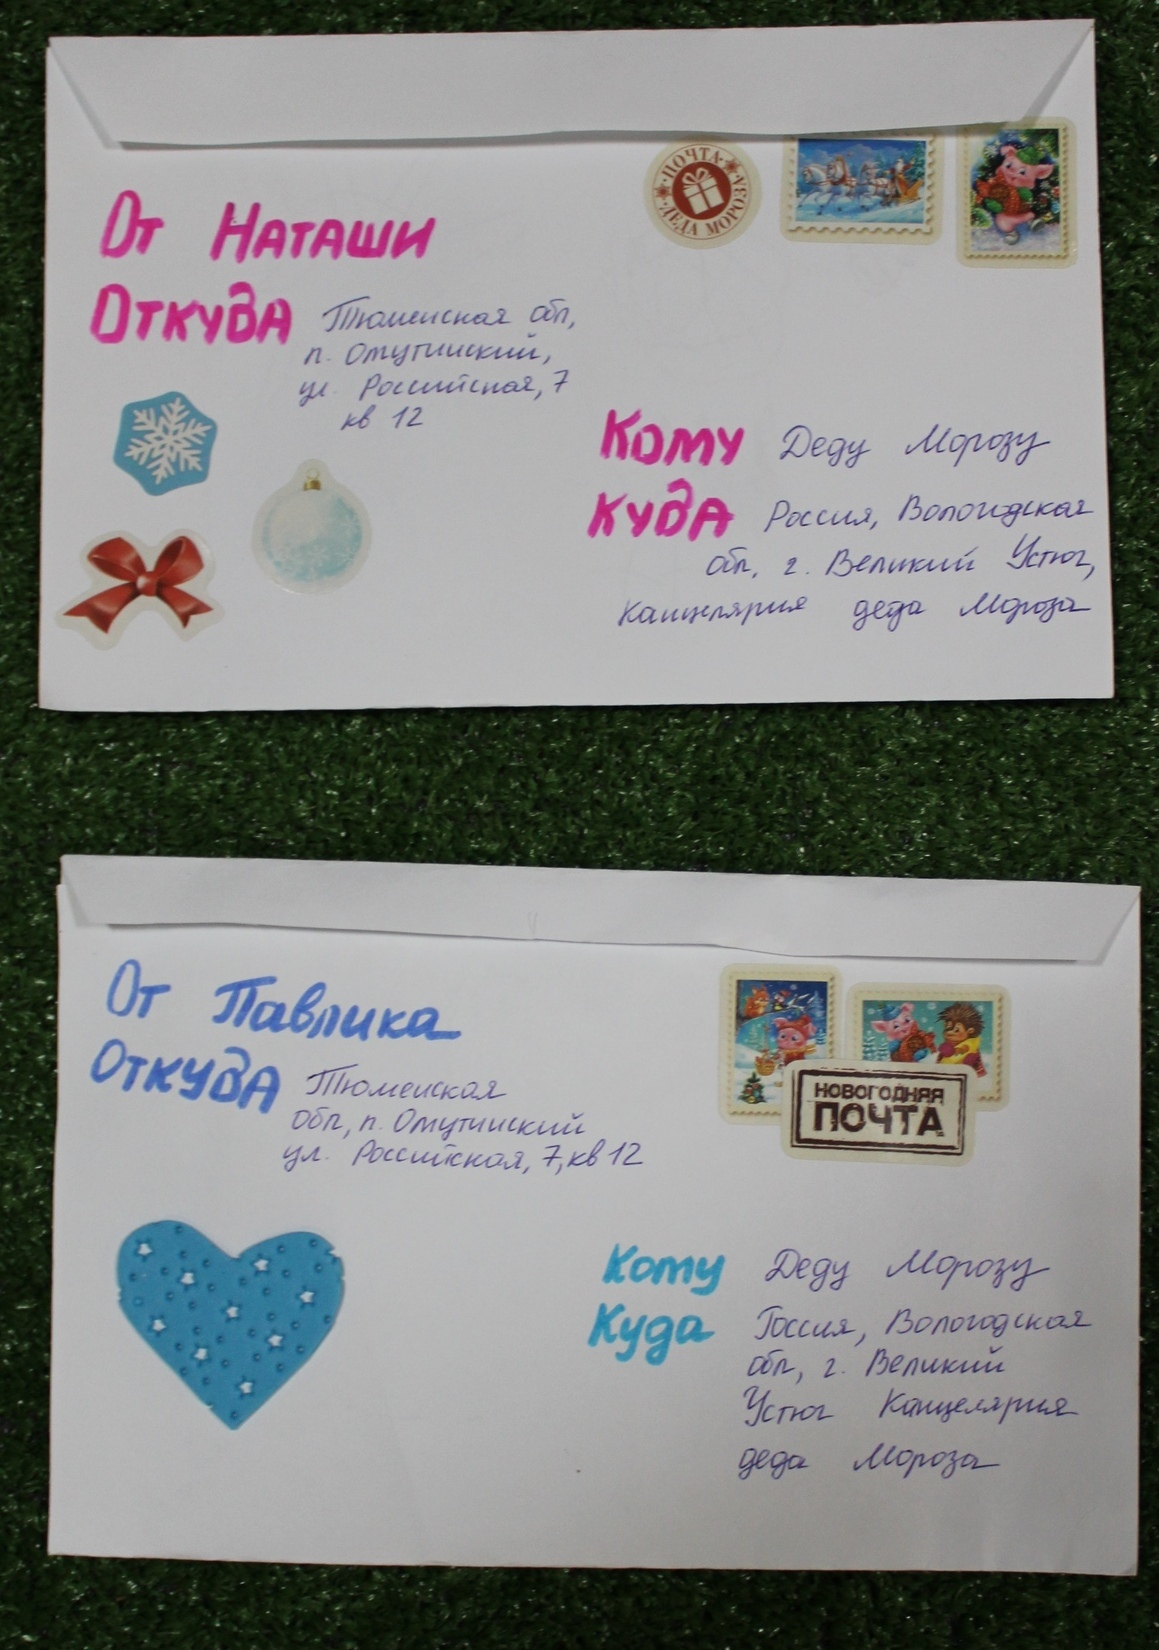 ПОЧТА
ДЕДА МОРОЗА
От Наташи
Откуда Тюменская обл,
п. Омутинский,
ул. Российская, 7
кв 12
Кому Деду Морозу
Куда Россия, Вологодская
обл, г. Великий Устюг,
Канцелярия деда Мороза
От Павлика
Откуда Тюменская
обл, п. Омутинский
ул. Российская, 7, кв 12
НОВОГОДНЯЯ
ПОЧТА
Кому Деду Морозу
Куда Россия, Вологодская
обл, г. Великий
Устюг Канцелярия
деда Мороза